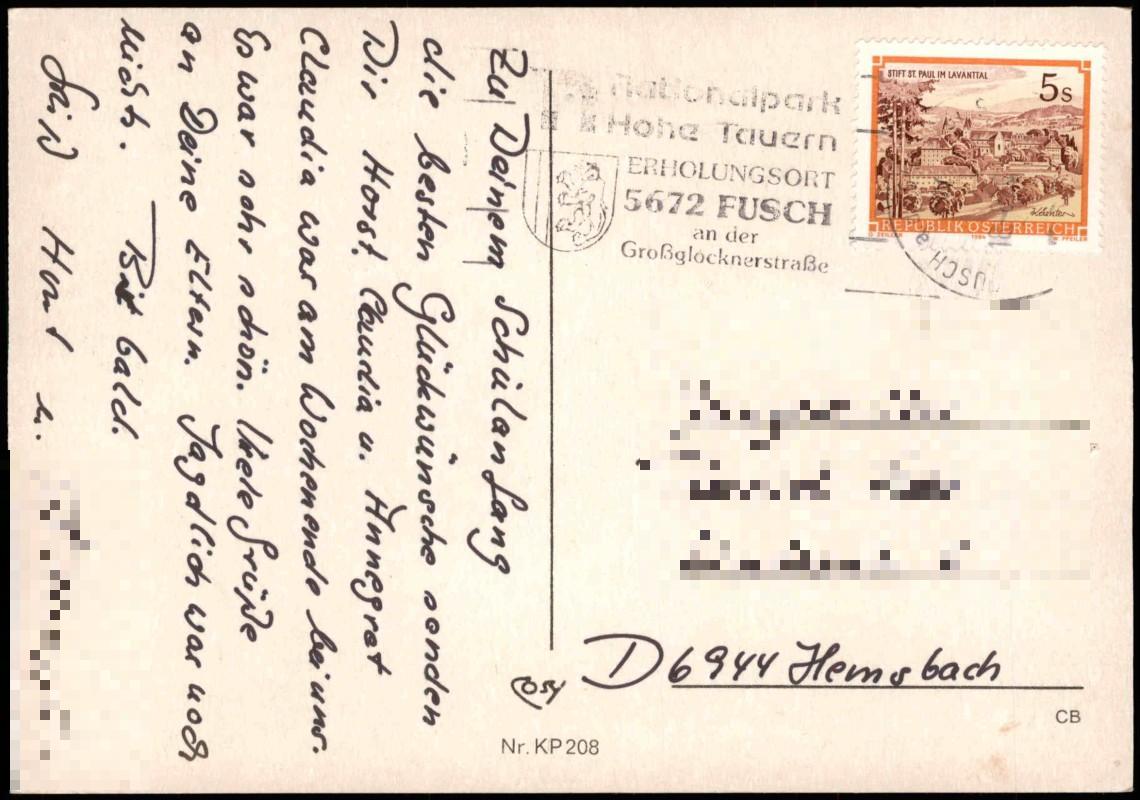 Zu Deinem Schulanfang
die besten Glückwünsche senden
Dir Horst, Claudia u. Annegret
Claudia war am Wochenende bei uns.
Es war sehr schön. Viele Grüße
an Deine Eltern. Jagdlich war noch
nichts. Bis bald.
Horst u.
Nationalpark
Hohe Tauern
ERHOLUNGSORT
5672 FUSCH
an der
Großglocknerstraße
STIFT ST. PAUL IM LAVANTTAL
5s
REPUBLIK ÖSTERREICH
O. ZEILER 1984 W. PFEILER
D 6944 Hemsbach
cosy
CB
Nr. KP 208